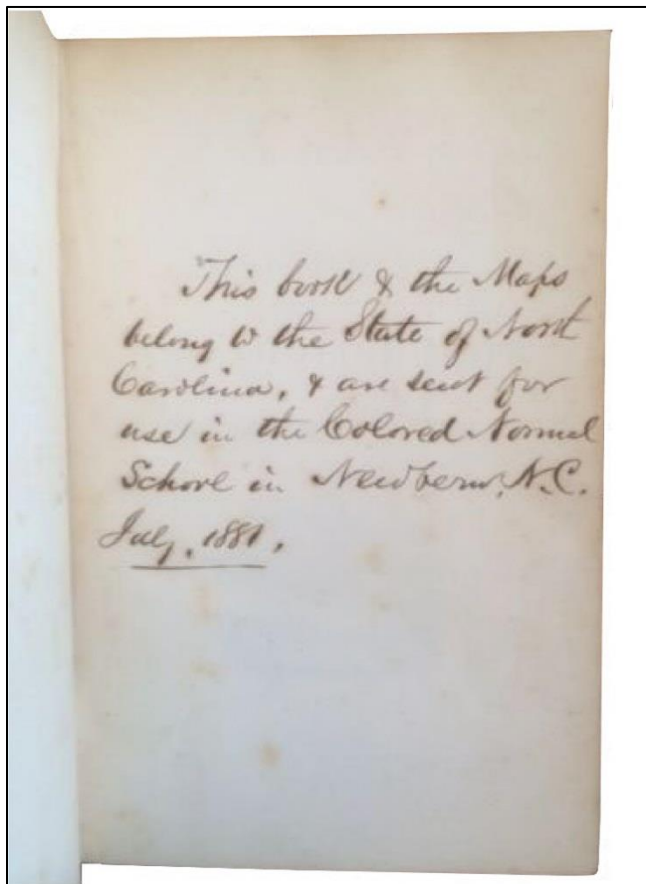 This book & the Maps
belong to the State of North
Carolina, & are sent for
use in the Colored Normal
School in Newbern, N.C.
July, 1881.